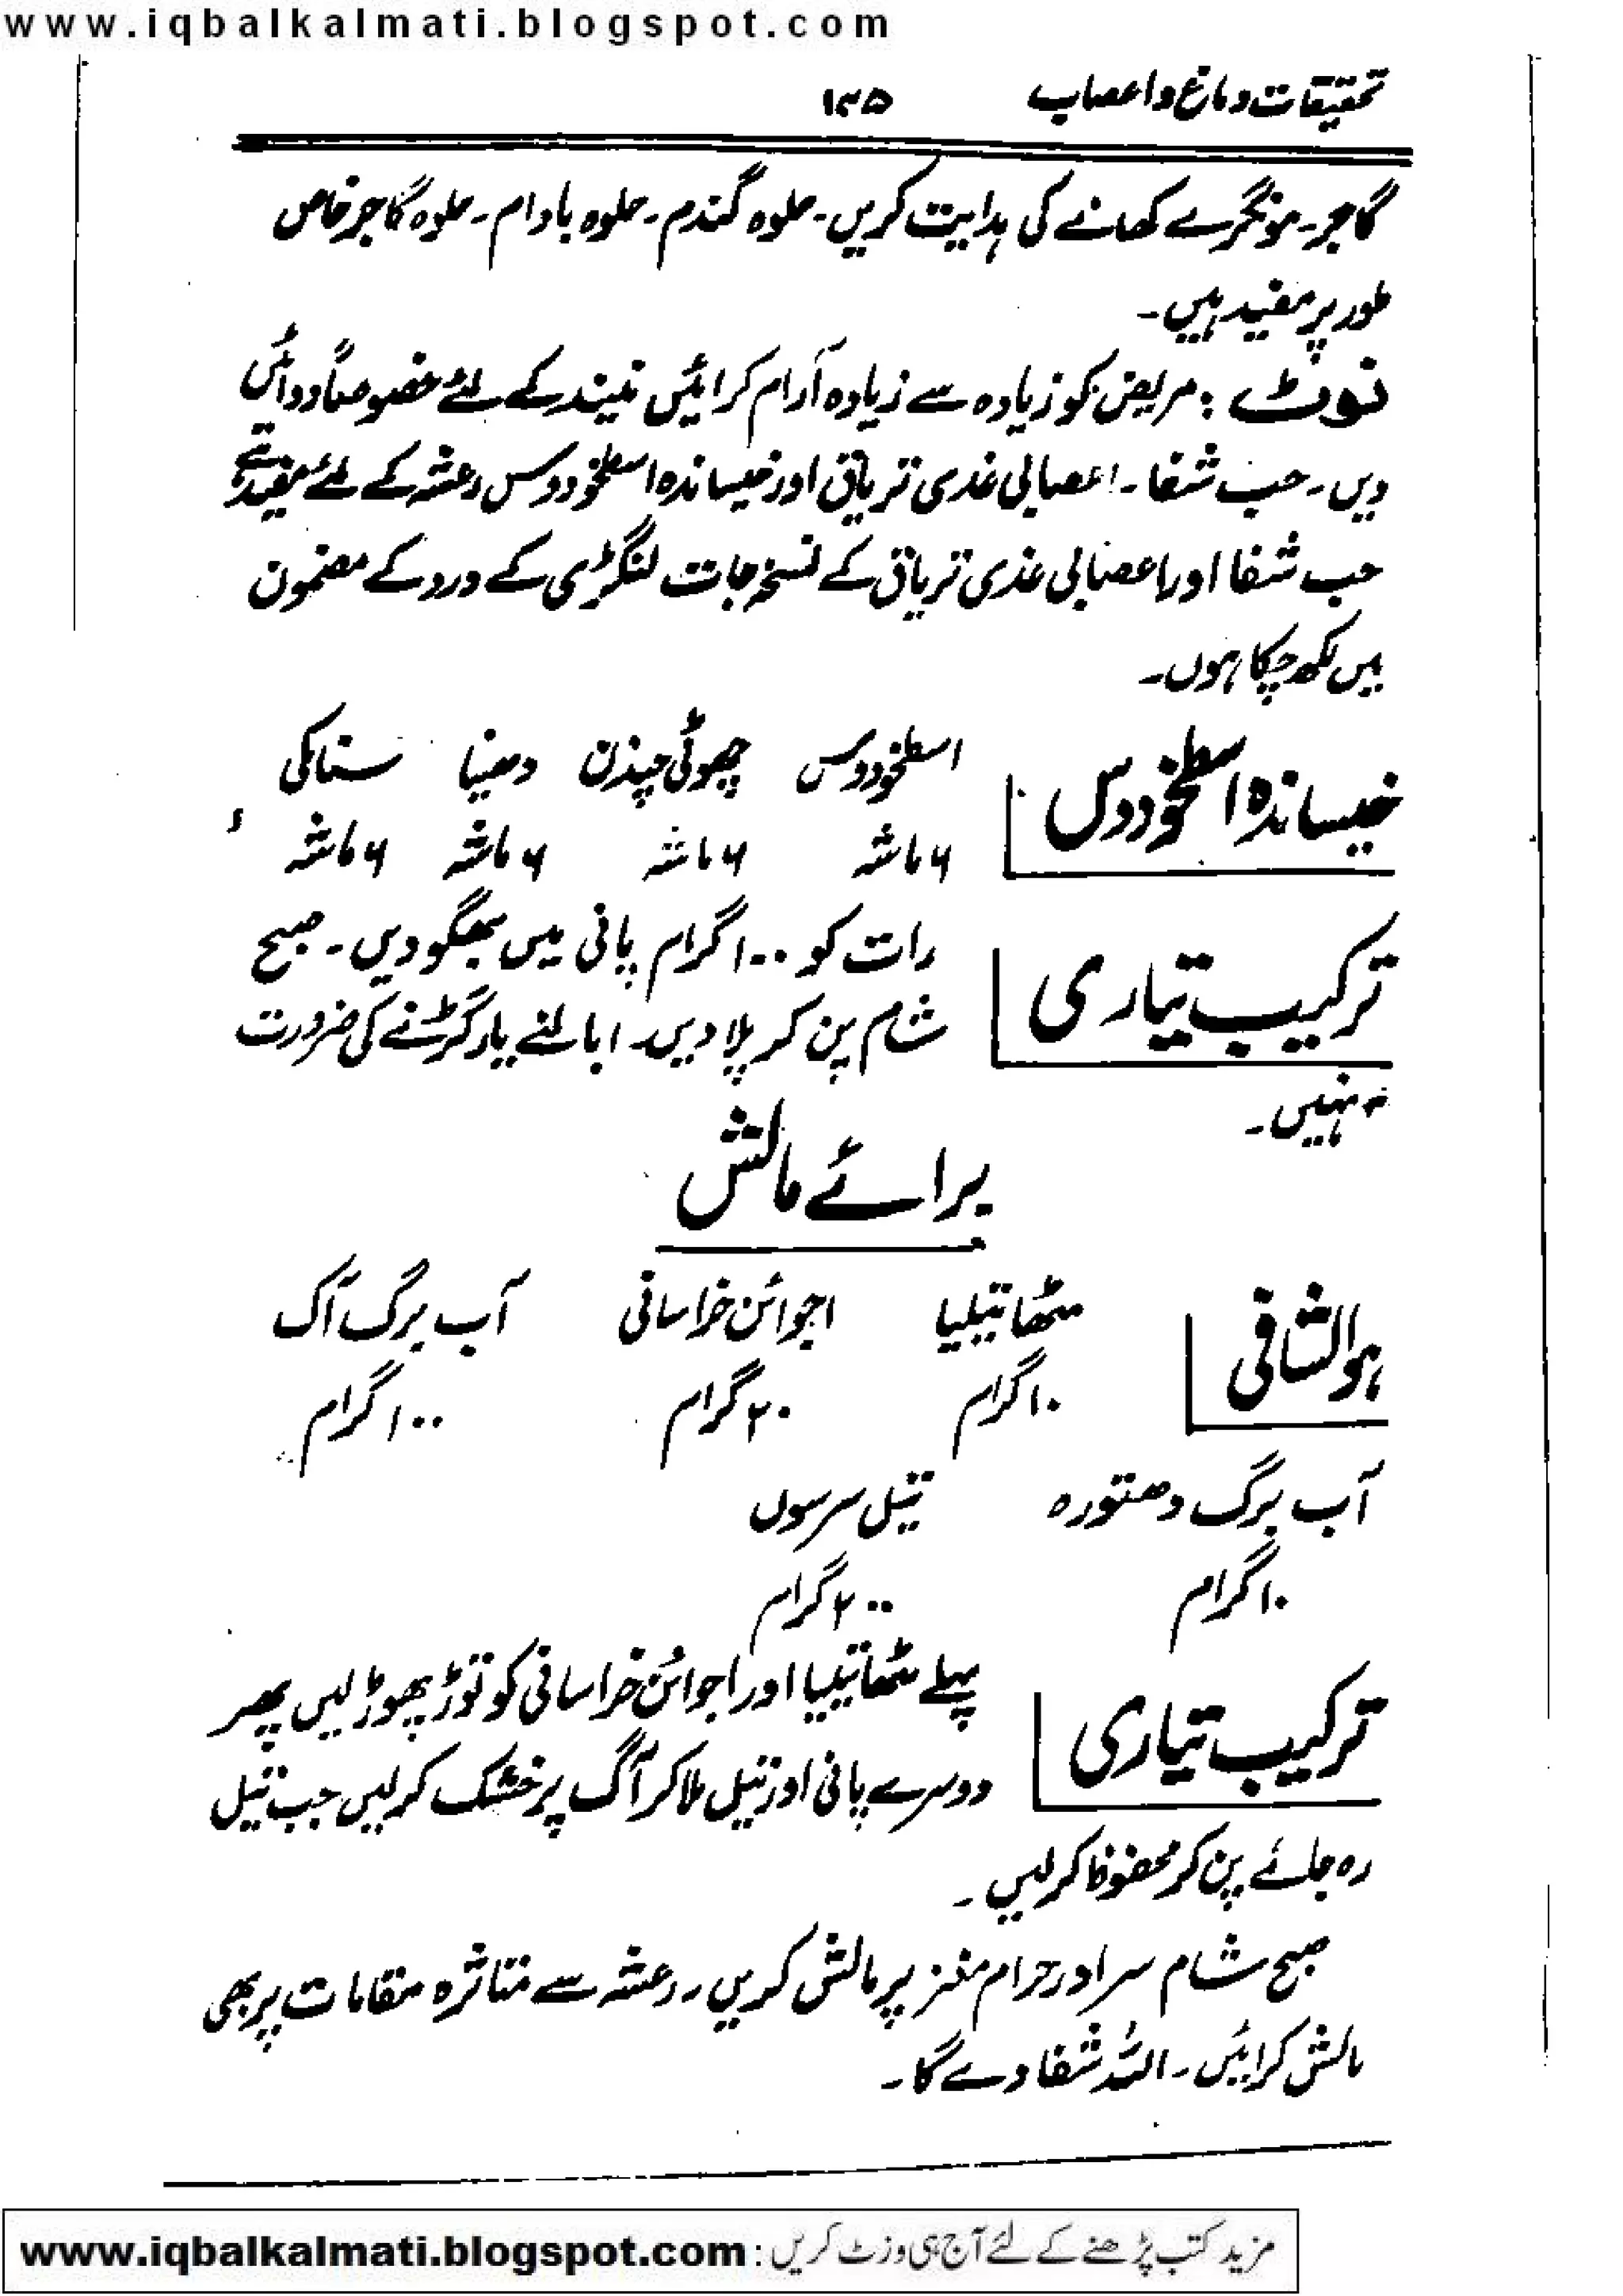 www.iqbalkalmati.blogspot.com
تحقیقات دماغ و اعصاب ۱۳۵
گاجر۔ مونگرے کھانے کی ہدایت کریں۔ حلوہ گندم۔ حلوہ بادام۔ حلوہ گاجر خاص
طور پر مفید ہیں۔
نوٹ : مریض کو زیادہ سے زیادہ آرام کرائیں نیند کے لئے خصوصاً دوائی
دیں۔ حب شفا۔ اعصابی غدی تریاق اور خیساندہ اسطخودوس رعشہ کے لئے مفید ہے
حب شفا اور اعصابی غدی تریاق کے نسخہ جات لنگڑی کے درد کے مضمون
میں لکھ چکا ہوں۔
خیساندہ اسطخودوس
اسطخودوس چھوٹی چندن دھنیا سناء مکی
۶ ماشہ ۶ ماشہ ۶ ماشہ ۶ ماشہ
ترکیب تیاری
رات کو ۱۰۰ گرام پانی میں بھگو دیں۔ صبح
شام پن کر پلا دیں۔ ابالنے یا رگڑنے کی ضرورت
نہیں۔
برائے مالش
ہوالشافی
مٹھا تیلیا اجوائن خراسانی آب برگ آک
۱۰ گرام ۲۰ گرام ۱۰۰ گرام
آب برگ دھتورہ تیل سرسوں
۱۰ گرام ۲۰۰ گرام
ترکیب تیاری
پہلے مٹھا تیلیا اور اجوائن خراسانی کو توڑ پھوڑ لیں پھر
دوسرے پانی اور تیل ملا کر آگ پر خشک کر لیں جب تیل
رہ جائے پن کر محفوظ کر لیں۔
صبح شام سر اور حرام مغز پر مالش کریں۔ رعشہ سے متاثرہ مقامات پر بھی
مالش کرائیں۔ اللہ شفا دے گا۔
مزید کتب پڑھنے کے لئے آج ہی وزٹ کریں : www.iqbalkalmati.blogspot.com